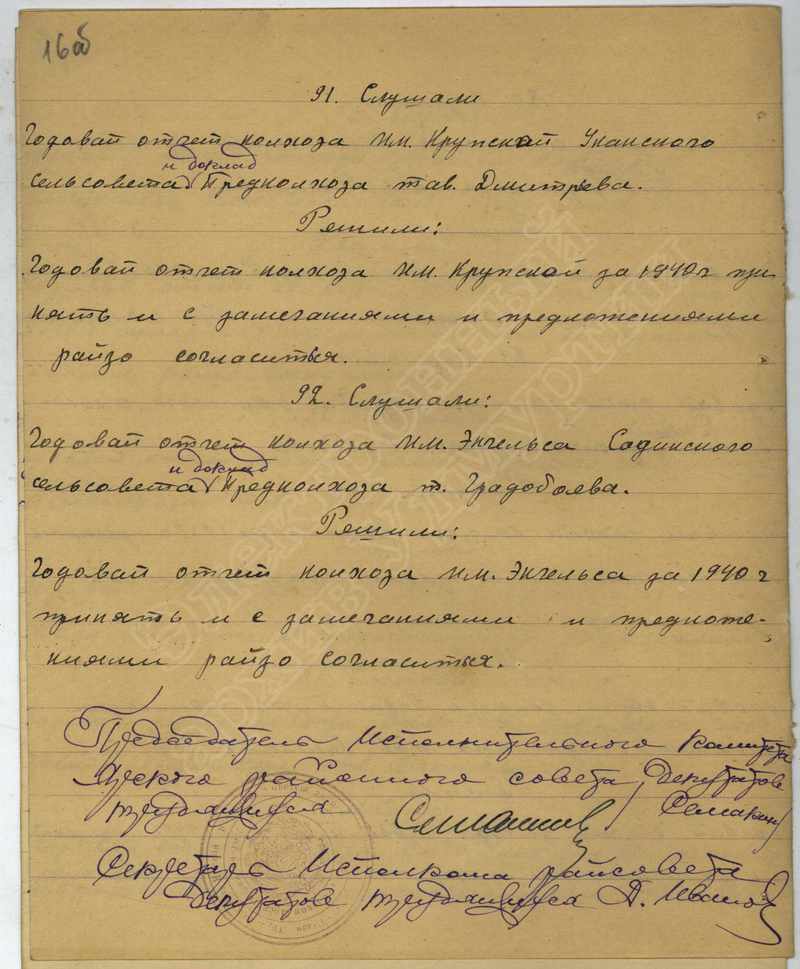 16об
91. Слушали
Годовай отчет колхоза им. Крупской Уканского
и доклад
сельсовета Предколхоза тав. Дмитрева.
Решили:
Годовай отчет колхоза им. Крупской за 1940 г при-
нять и с замечаниями и предложениями
райзо согласиться.
92. Слушали:
Годовай отчет колхоза им. Энгельса Садинского
и доклад
сельсовета Предколхоза т. Градобоева.
Решили:
Годовай отчет колхоза им. Энгельса за 1940 г
принять и с замечаниями и предложе-
ниями райзо согласиться.
Председатель Исполнительного комитета
Ярского районного совета депутатов
трудящихся /Семакин/
Секретарь Исполкома райсовета
депутатов трудящихся Д. Иванов